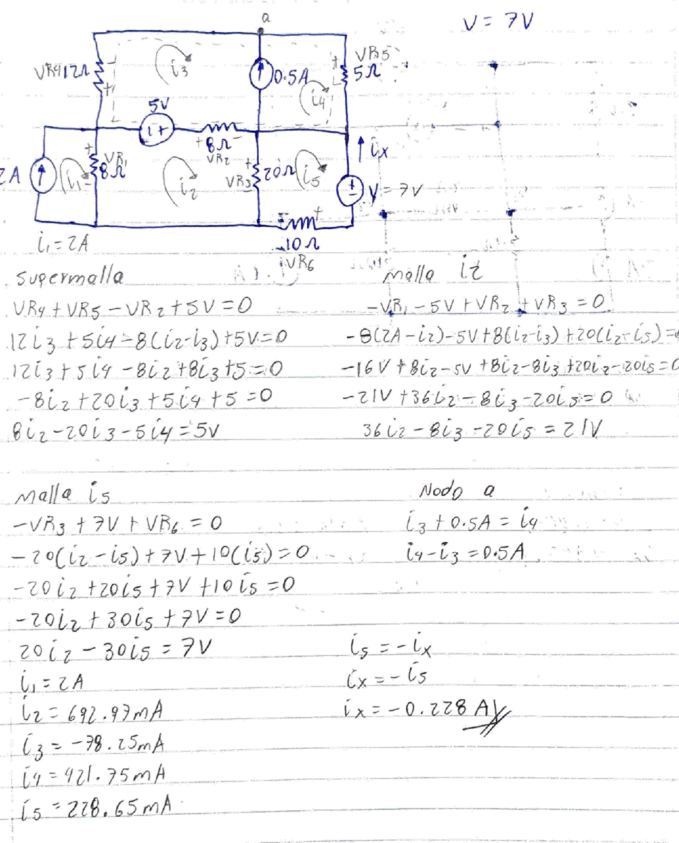 V = 7V
a
VR4 12Ω
i3
0.5A
VR5
5Ω
i4
5V
8Ω
VR2
ix
2A
i1
VR1
8Ω
i2
VR3
20Ω
i5
V = 7V
10Ω
VR6
i1 = 2A
Supermalla
VR4 + VR5 - VR2 + 5V = 0
12i3 + 5i4 - 8(i2-i3) + 5V = 0
12i3 + 5i4 - 8i2 + 8i3 + 5 = 0
-8i2 + 20i3 + 5i4 + 5 = 0
8i2 - 20i3 - 5i4 = 5V
malla i2
-VR1 - 5V + VR2 + VR3 = 0
-8(2A - i2) - 5V + 8(i2-i3) + 20(i2-i5) = 0
-16V + 8i2 - 5V + 8i2 - 8i3 + 20i2 - 20i5 = 0
-21V + 36i2 - 8i3 - 20i5 = 0
36i2 - 8i3 - 20i5 = 21V
malla i5
-VR3 + 7V + VR6 = 0
-20(i2 - i5) + 7V + 10(i5) = 0
-20i2 + 20i5 + 7V + 10i5 = 0
-20i2 + 30i5 + 7V = 0
20i2 - 30i5 = 7V
i1 = 2A
i2 = 692.97mA
i3 = -78.25mA
i4 = 421.75mA
i5 = 228.65mA
Nodo a
i3 + 0.5A = i4
i4 - i3 = 0.5A
i5 = -ix
ix = -i5
ix = -0.228 A